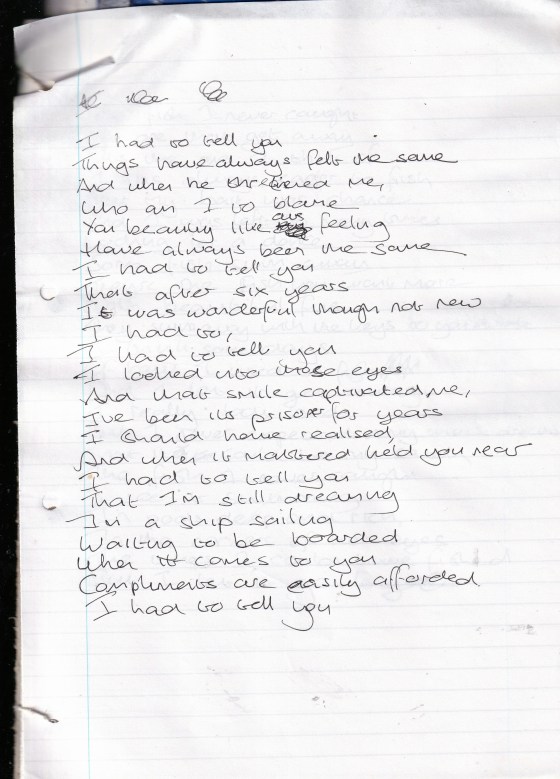 I had to tell you
Things have always felt the same
And when he threatened me,
Who am I to blame
You beauty like our feeling
Have always been the same
I had to tell you
That after six years
It was wonderful though not new
I had to,
I had to tell you
I looked into those eyes
And that smile captivated me,
I've been its prisoner for years
I should have realised,
And when it mattered held you near
I had to tell you
That I'm still dreaming
I'm a ship sailing
Waiting to be boarded
When it comes to you
Compliments are easily afforded
I had to tell you